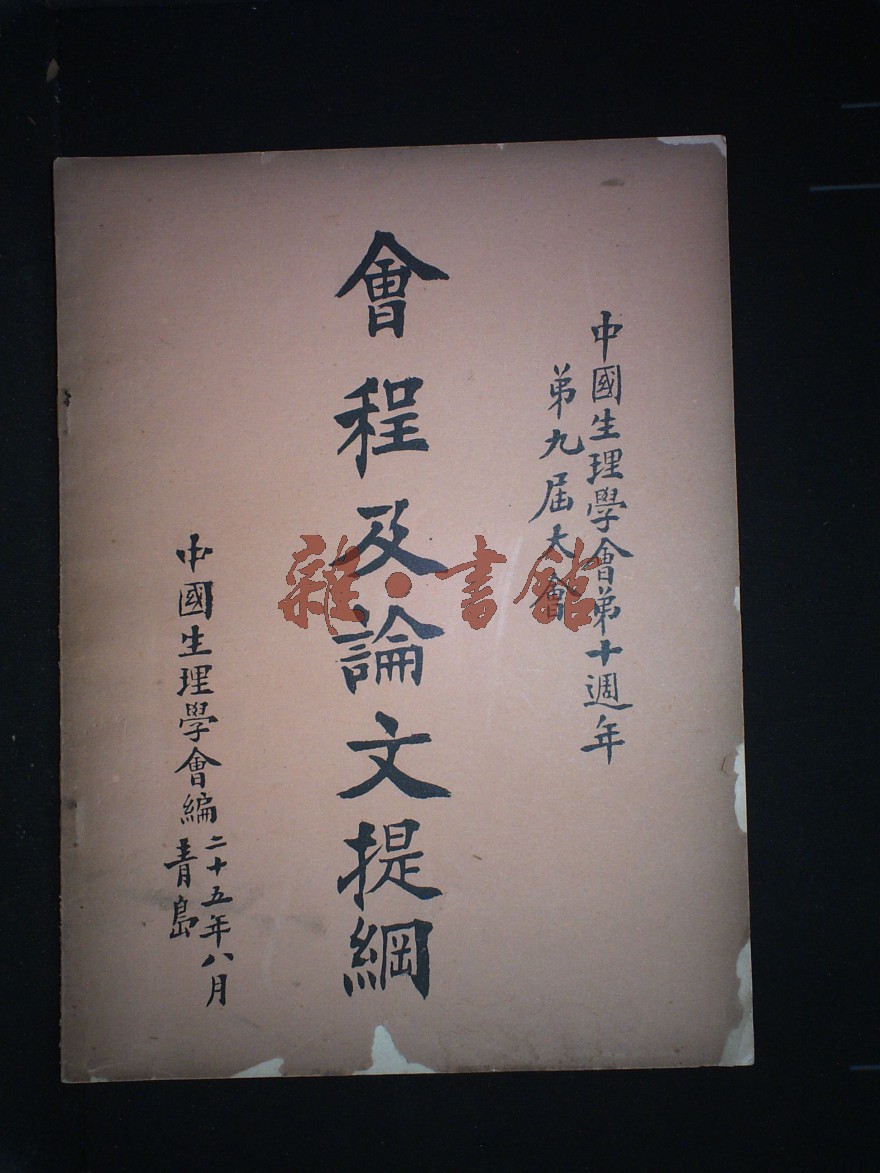 中國生理學會第十週年
第九届大會
會程及論文提綱
中國生理學會編
二十五年八月
青島
雜·書館